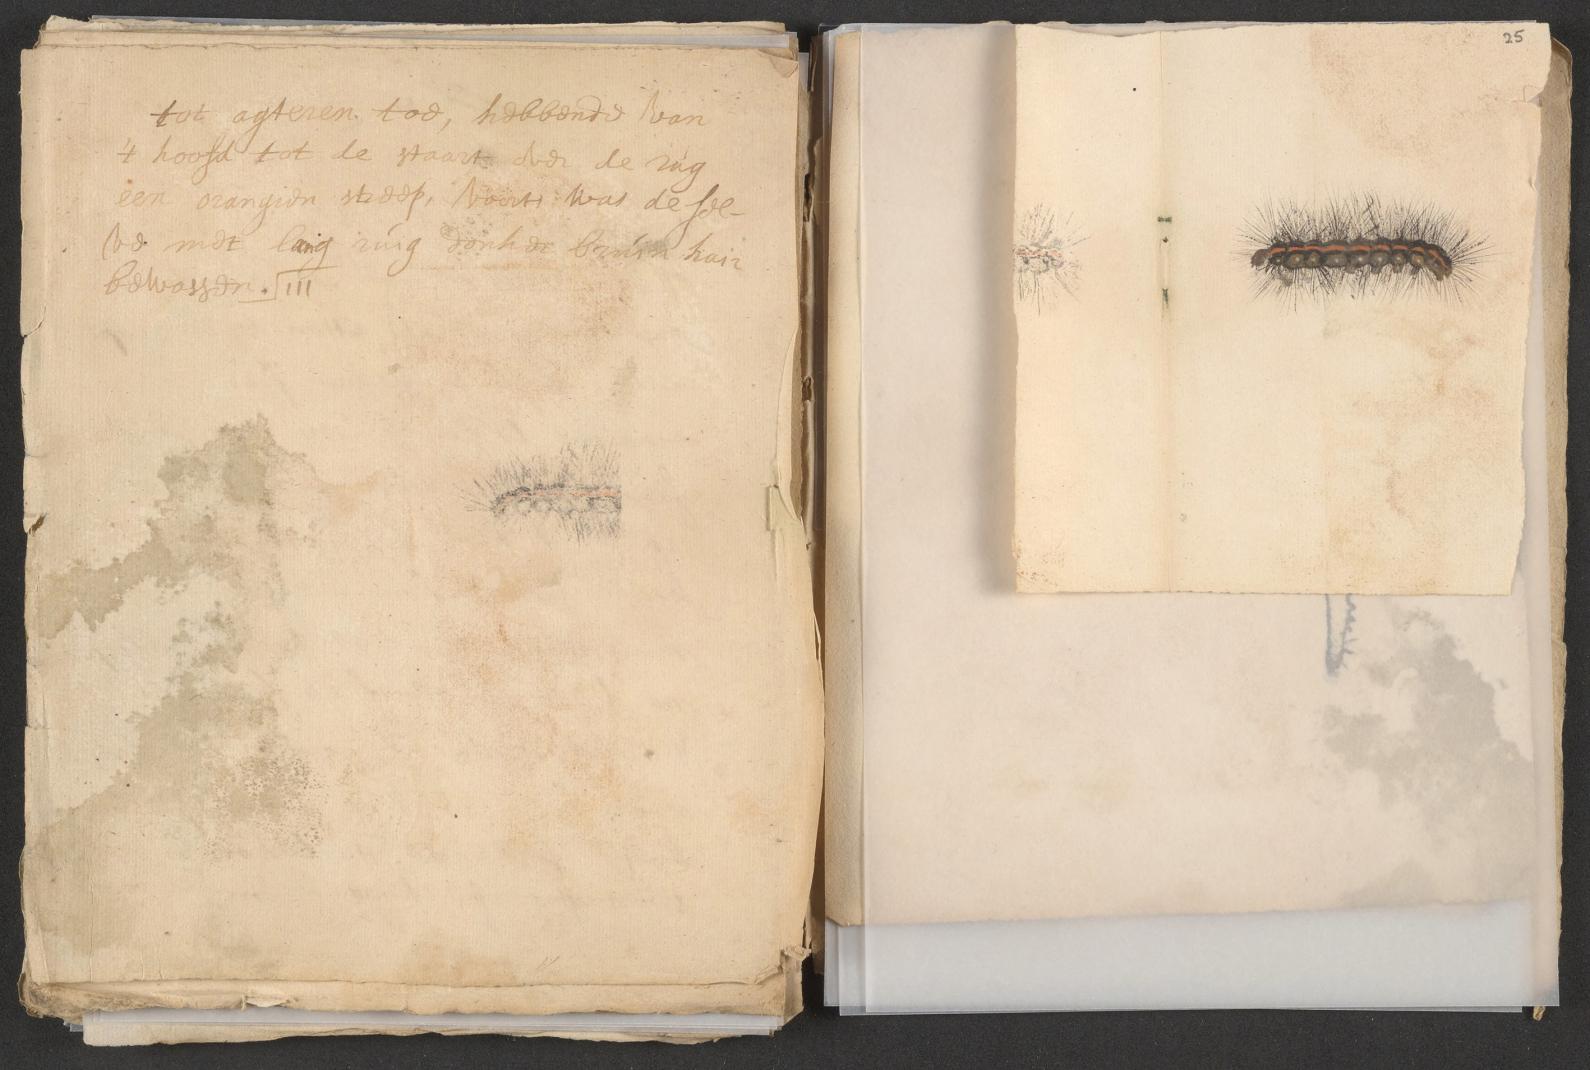 tot agteren toe, hebbende van
't hoofd tot de staart over de rug
een orangien streep, voorts was deſel-
ve met lang ruig donker bruin hair
bewassen. III
25